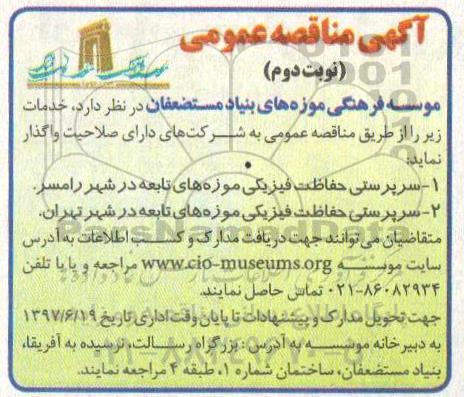 آگهی مناقصه عمومی
(نوبت دوم)
موسسه فرهنگی موزه‌های بنیاد مستضعفان در نظر دارد، خدمات
زیر را از طریق مناقصه عمومی به شرکت‌های دارای صلاحیت واگذار
نماید:
۱-سرپرستی حفاظت فیزیکی موزه‌های تابعه در شهر رامسر.
۲-سرپرستی حفاظت فیزیکی موزه‌های تابعه در شهر تهران.
متقاضیان می‌توانند جهت دریافت مدارک و کسب اطلاعات به آدرس
سایت موسسه www.cio-museums.org مراجعه و یا با تلفن
۰۲۱-۸۶۰۸۲۹۳۴ تماس حاصل نمایند.
جهت تحویل مدارک و پیشنهادات تا پایان وقت اداری تاریخ ۱۳۹۷/۶/۱۹
به دبیرخانه موسسه به آدرس : بزرگراه رسالت، نرسیده به آفریقا،
بنیاد مستضعفان، ساختمان شماره ۱، طبقه ۴ مراجعه نمایند.